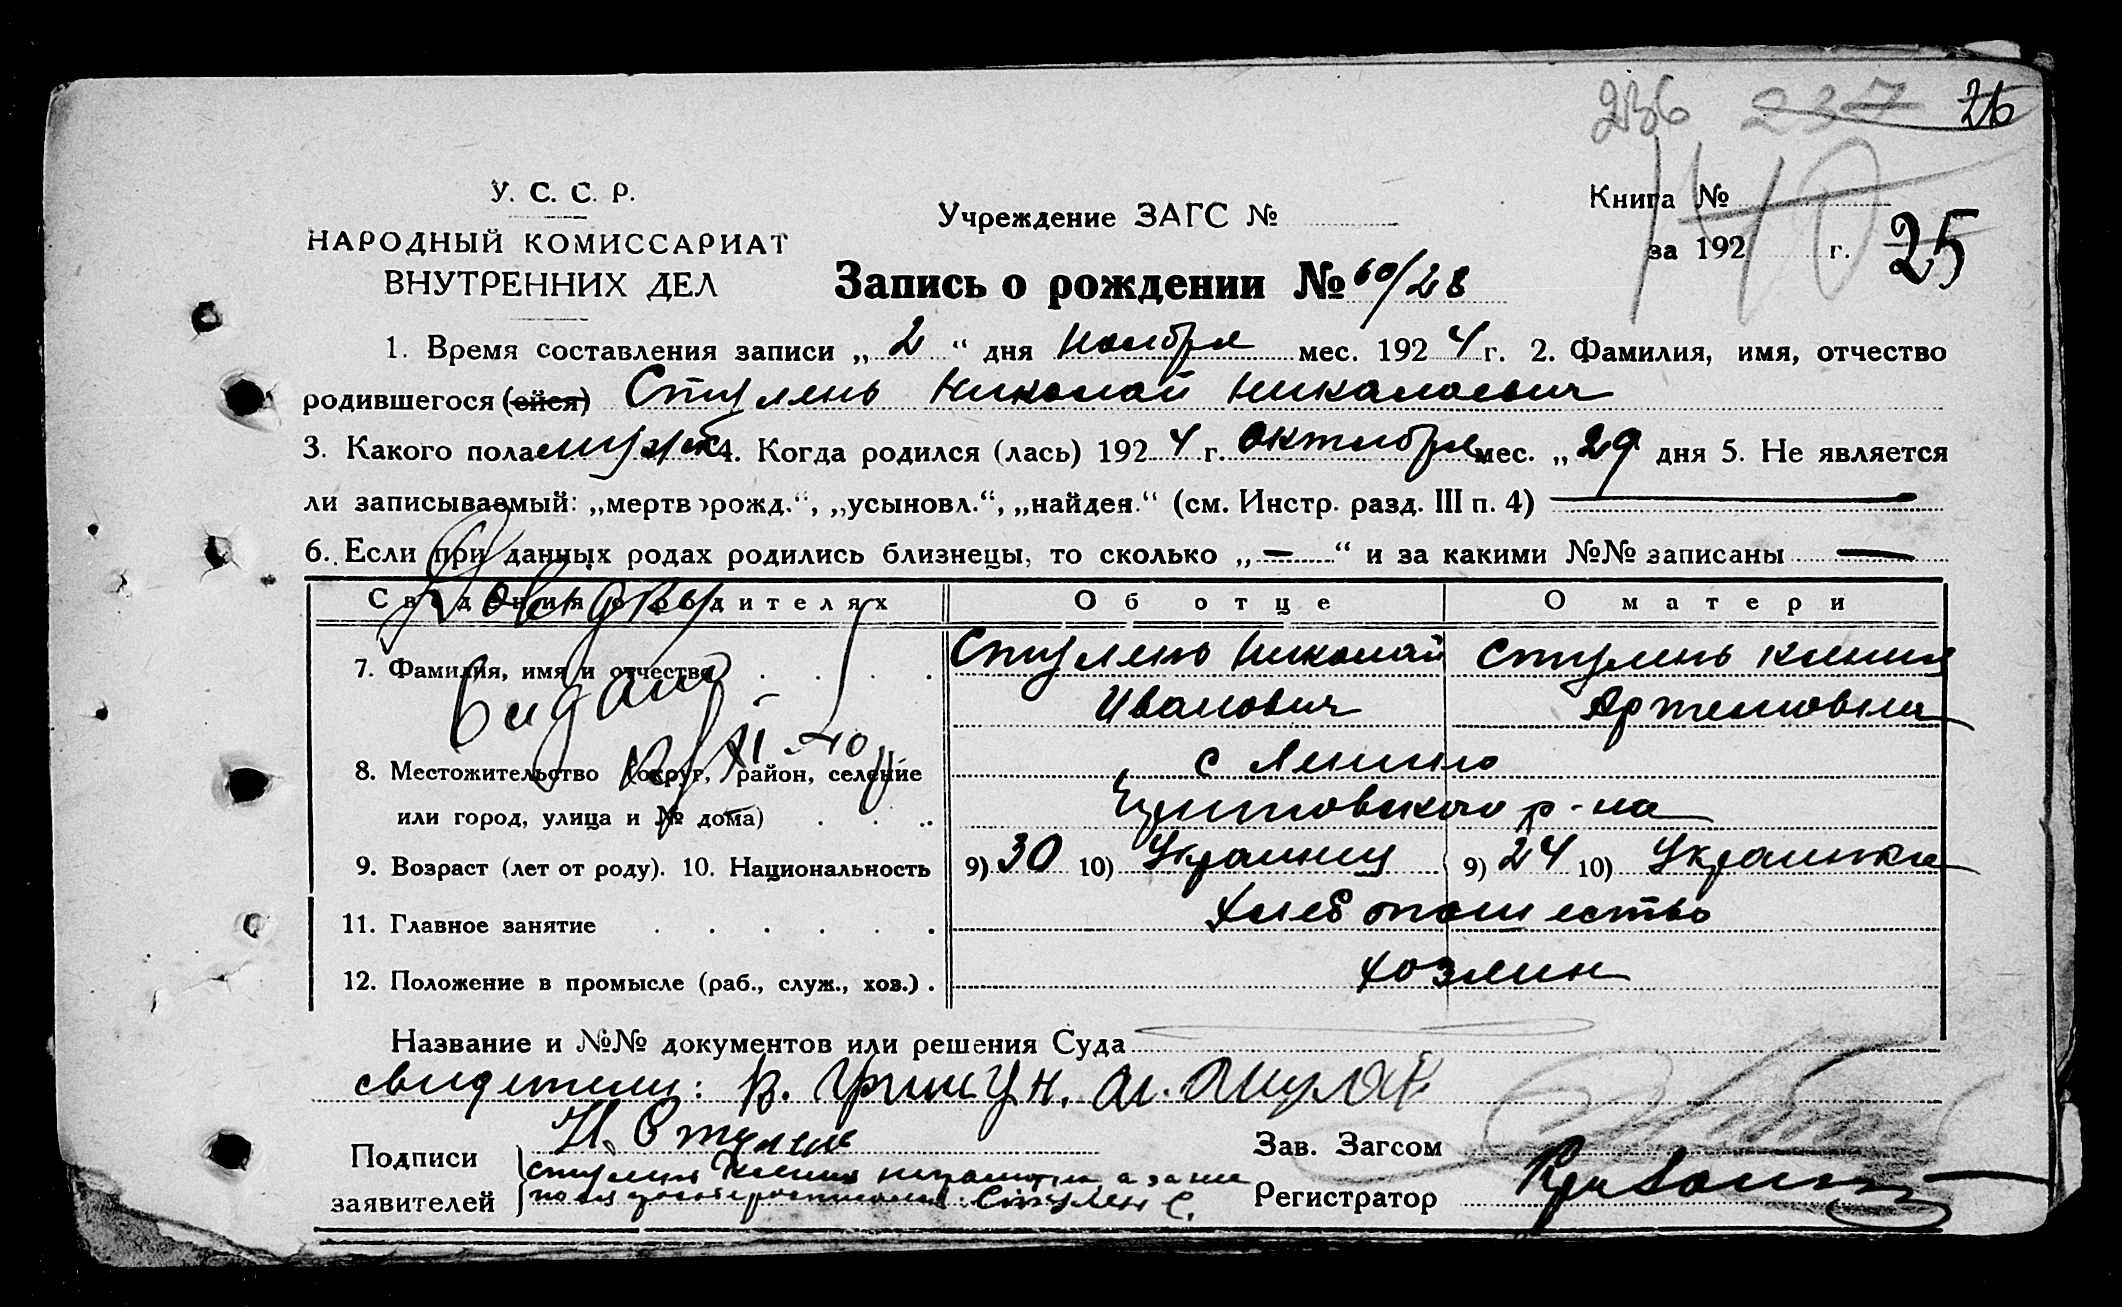 236 237 26
140
У. С. С. Р.
НАРОДНЫЙ КОМИССАРИАТ
ВНУТРЕННИХ ДЕЛ
Учреждение ЗАГС №
Книга №
за 192 г. 25
Запись о рождении № 60/28
1. Время составления записи „ 2 “ дня Ноября мес. 1924 г. 2. Фамилия, имя, отчество
родившегося (ойся) Стулень Николай Николаевич
3. Какого пола муж 4. Когда родился (лась) 1924 г. октября мес. „ 29 дня 5. Не является
ли записываемый: „мертворожд.“, „усыновл.“, „найден.“ (см. Инстр. разд. III п. 4) —
6. Если при данных родах родились близнецы, то сколько „ — “ и за какими №№ записаны —
Сведения о родителях Об отце О матери
7. Фамилия, имя и отчество Стулень Николай Стулень Ксения
Иванович Артемовна
Довидку
видано
8. Местожительство (округ, район, селение с Ленино
или город, улица и № дома) р-на
9. Возраст (лет от роду). 10. Национальность 9) 30 10) Украинец 9) 24 10) Украинка
11. Главное занятие Хлебопашество
12. Положение в промысле (раб., служ., хоз.) Хозяин
Название и №№ документов или решения Суда
свидетели: В. Грищун. М.
Подписи
заявителей
Н. Стулень
Стулень Ксения неграмотна а за нее
по ея росписался: Стулень С.
Зав. Загсом
Регистратор